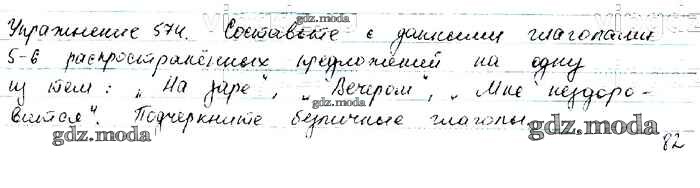 Упражнение 574. Составьте с данными глаголами
5-6 распространённых предложений на одну
из тем: „На заре", „Вечером", „Мне нездоро-
вится". Подчеркните безличные глаголы.
gdz.moda
gdz.moda
gdz.moda
gdz.moda
gdz.moda
82